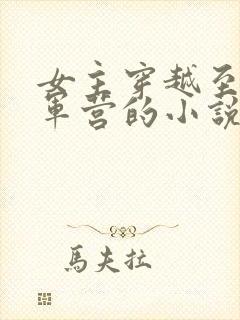 女主穿越至
軍营的小説
馬夫拉